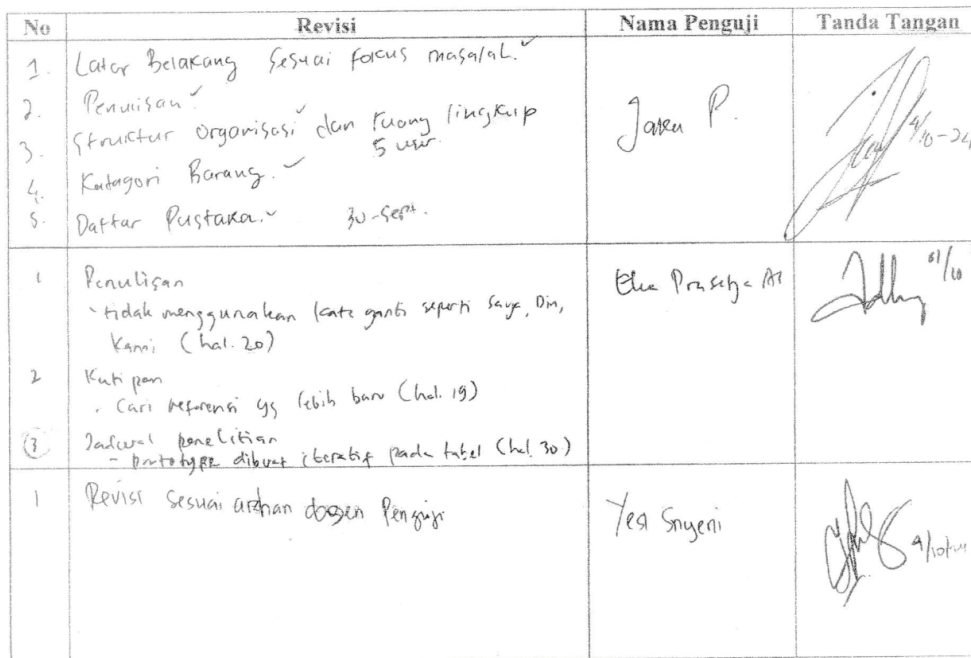 No Revisi Nama Penguji Tanda Tangan
1. Latar Belakang sesuai fokus masalah. ✓
2. Penulisan ✓
3. Struktur organisasi ✓ dan ruang lingkup
5 user.
4. Katagori Barang. ✓
5. Daftar Pustaka. ✓ 30-Sept.
P.
4/10-24
1 Penulisan
- tidak menggunakan kata ganti seperti saya, Dia,
Kami, (hal. 20)
2 Kutipan
. Cari referensi yg lebih baru (hal. 19)
3 Jadwal penelitian
- prototype dibuat iteratif pada tabel (hal. 30)
Eka Prasetya
1 Revisi sesuai arahan dosen Penguji
Yesi